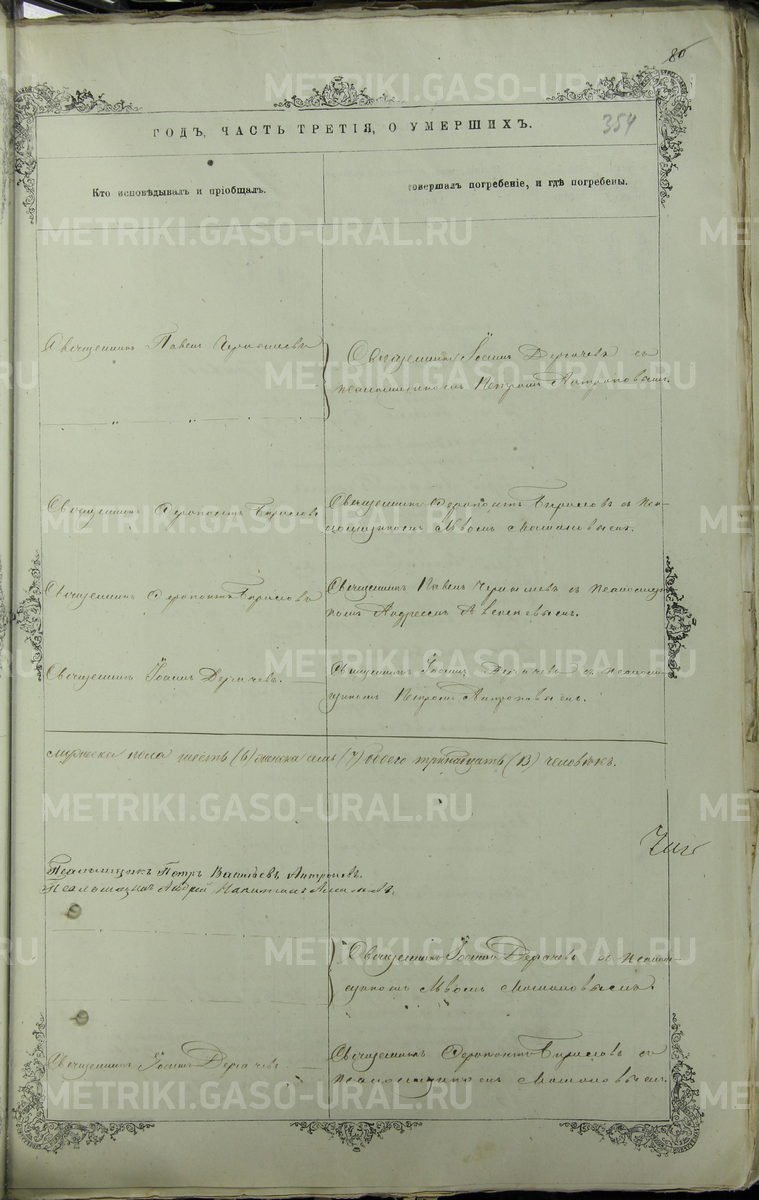 80
ГОДЪ, ЧАСТЬ ТРЕТІЯ, О УМЕРШИХЪ.
354
Кто исповѣдывалъ и пріобщалъ.
совершалъ погребеніе, и гдѣ погребены.
METRIKI.GASO-URAL.RU
Священникъ Павелъ
Священникъ Іоаннъ Дергачевъ съ
псаломщикомъ Петромъ Антроповымъ.
Священникъ Ферапонтъ Бирюковъ
Священникъ Ферапонтъ Бирюковъ съ пса-
ломщикомъ Львомъ
Священникъ Ферапонтъ Бирюковъ
Священникъ Павелъ съ псаломщи-
комъ Андреемъ
Священникъ Іоаннъ Дергачевъ.
Священникъ Іоаннъ Дергачевъ съ псалом-
щикомъ Петромъ Антроповымъ.
мужеска пола шесть (6) женска семь (7) обоего тринадцать (13) человѣкъ.
Псаломщикъ Петръ Антроповъ.
Псаломщикъ Андрей
Священникъ Іоаннъ Дергачевъ съ псалом-
щикомъ Львомъ
Священникъ Іоаннъ Дергачевъ
Священникъ Ферапонтъ Бирюковъ съ
псаломщикомъ